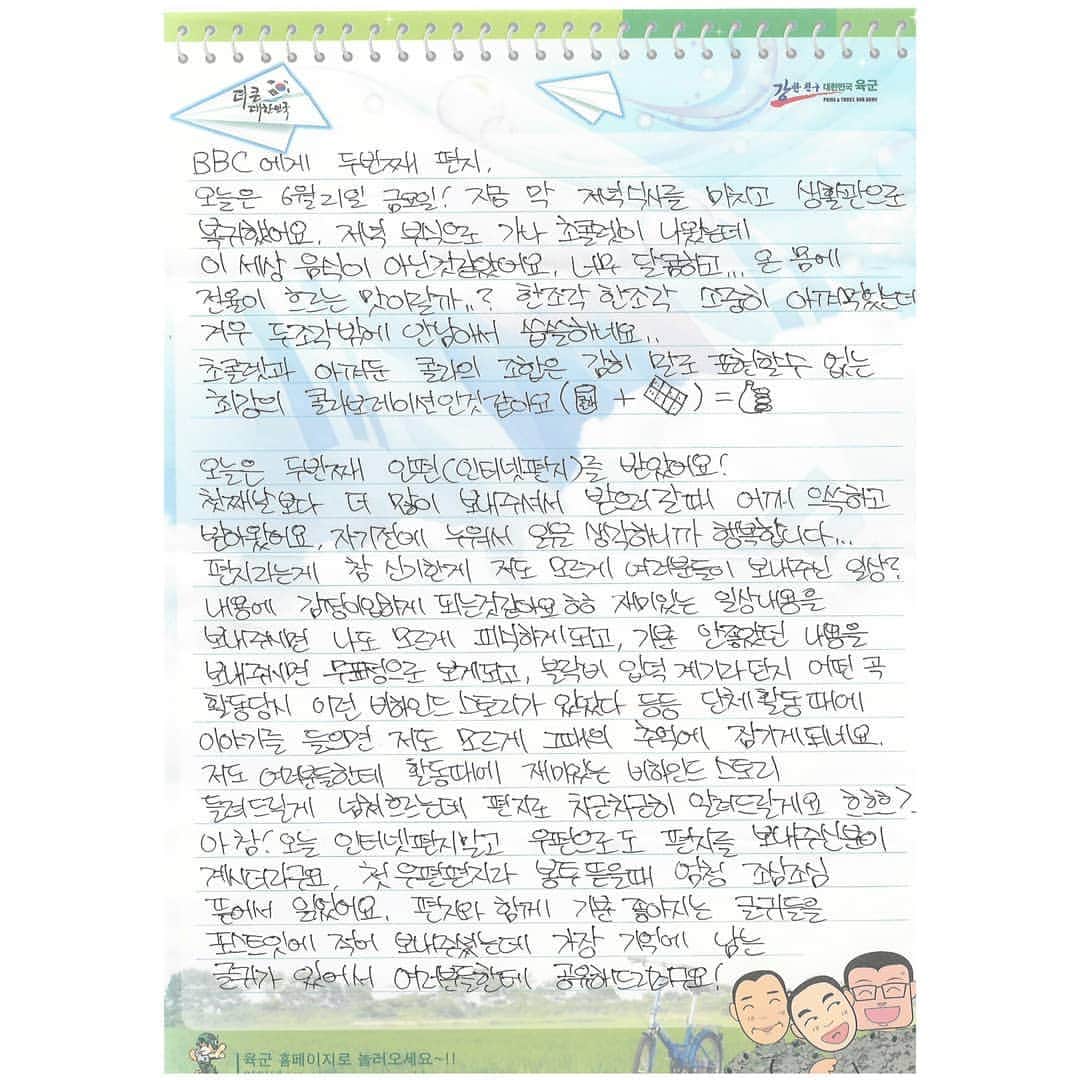 더 큰
대한민국
강한 친구 대한민국 육군
PRIDE & TRUST, ROK ARMY
BBC 에게 두번째 편지.
오늘은 6월 21일 금요일! 지금 막 저녁식사를 마치고 생활관으로
복귀했어요. 저녁 부식으로 가나 초콜렛이 나왔는데
이 세상 음식이 아닌것같았어요. 너무 달콤하고... 온 몸에
전율이 흐르는 맛이랄까..? 한조각 한조각 소중히 아껴먹었는데
겨우 두조각밖에 안남아서 씁쓸하네요..
초콜렛과 아껴둔 콜라의 조합은 감히 말로 표현할수 없는
최강의 콜라보레이션인것같아요 ( + ) =
오늘은 두번째 인편(인터넷편지)를 받았어요!
첫째날보다 더 많이 보내주셔서 받으러갈때 어깨 으쓱하고
받아왔어요. 자기전에 누워서 읽을 생각하니까 행복합니다...
편지라는게 참 신기한게 저도 모르게 여러분들이 보내주신 일상?
내용에 감정이입하게 되는것같아요 ㅎㅎ 재미있는 일상내용을
보내주시면 나도 모르게 피식하게되고, 기분 안좋았던 내용을
보내주시면 무표정으로 보게되고, 블락비 입덕 계기라던지 어떤 곡
활동당시 이런 비하인드스토리가 있었다 등등 단체활동때에
이야기를 들으면 저도 모르게 그때의 추억에 잠기게되네요.
저도 여러분들한테 활동때에 재미있는 비하인드 스토리
들려드릴게 넘쳐흐르는데 편지로 차근차근히 알려드릴게요 흐흐흐?
아 참! 오늘 인터넷편지말고 우편으로도 편지를 보내주신분이
계시더라구요. 첫 우편편지라 봉투 뜯을때 엄청 조심조심
뜯어서 읽었어요. 편지와 함께 기분 좋아지는 글귀들을
포스트잇에 적어 보내주셨는데 가장 기억에 남는
글귀가 있어서 여러분들한테 공유해드리려구요!
육군 홈페이지로 놀러오세요~!!